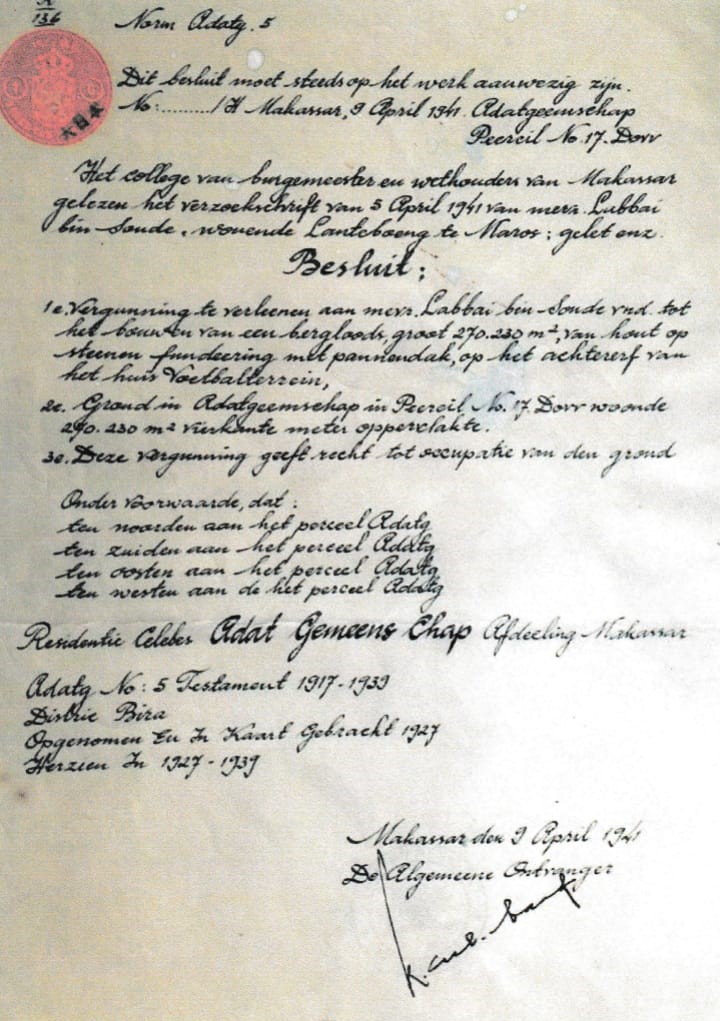 136
Norm Adatg. 5
大日本
Dit besluit moet steeds op het werk aanwezig zijn.
No: ......../H Makassar, 9 April 1941 Adatgeemschap
Peerceil No. 17. Dorv
Het college van burgemeester en wethouders van Makassar
gelezen het verzoekschrift van 5 April 1941 van mevr. Labbai
bin Soude, wonende Lanteboeng te Maros; gelet enz.
Besluit:
1e. Vergunning te verleenen aan mevr. Labbai bin Soude vnd. tot
het bouwen van een bergloods, groot 270.230 m², van hout op
steenen fundeering met pannendak, op het achtererf van
het huis Voetbalterrein,
2e. Grond in Adatgeemschap in Peerceil No. 17. Dorv woonde
270.230 m² vierkante meter oppervlakte.
3e. Deze vergunning geeft recht tot occupatie van den grond
Onder voorwaarde, dat :
ten noorden aan het perceel Adatg
ten zuiden aan het perceel Adatg
ten oosten aan het perceel Adatg
ten westen aan de het perceel Adatg
Residentie Celebes Adat Gemeens Chap Afdeeling Makassar
Adatg No: 5 Testament 1917-1939
Distric Bira
Opgenomen En In Kaart Gebracht 1927
Herzien In 1927-1939
Makassar den 9 April 1941
De Algemeene Ontvanger